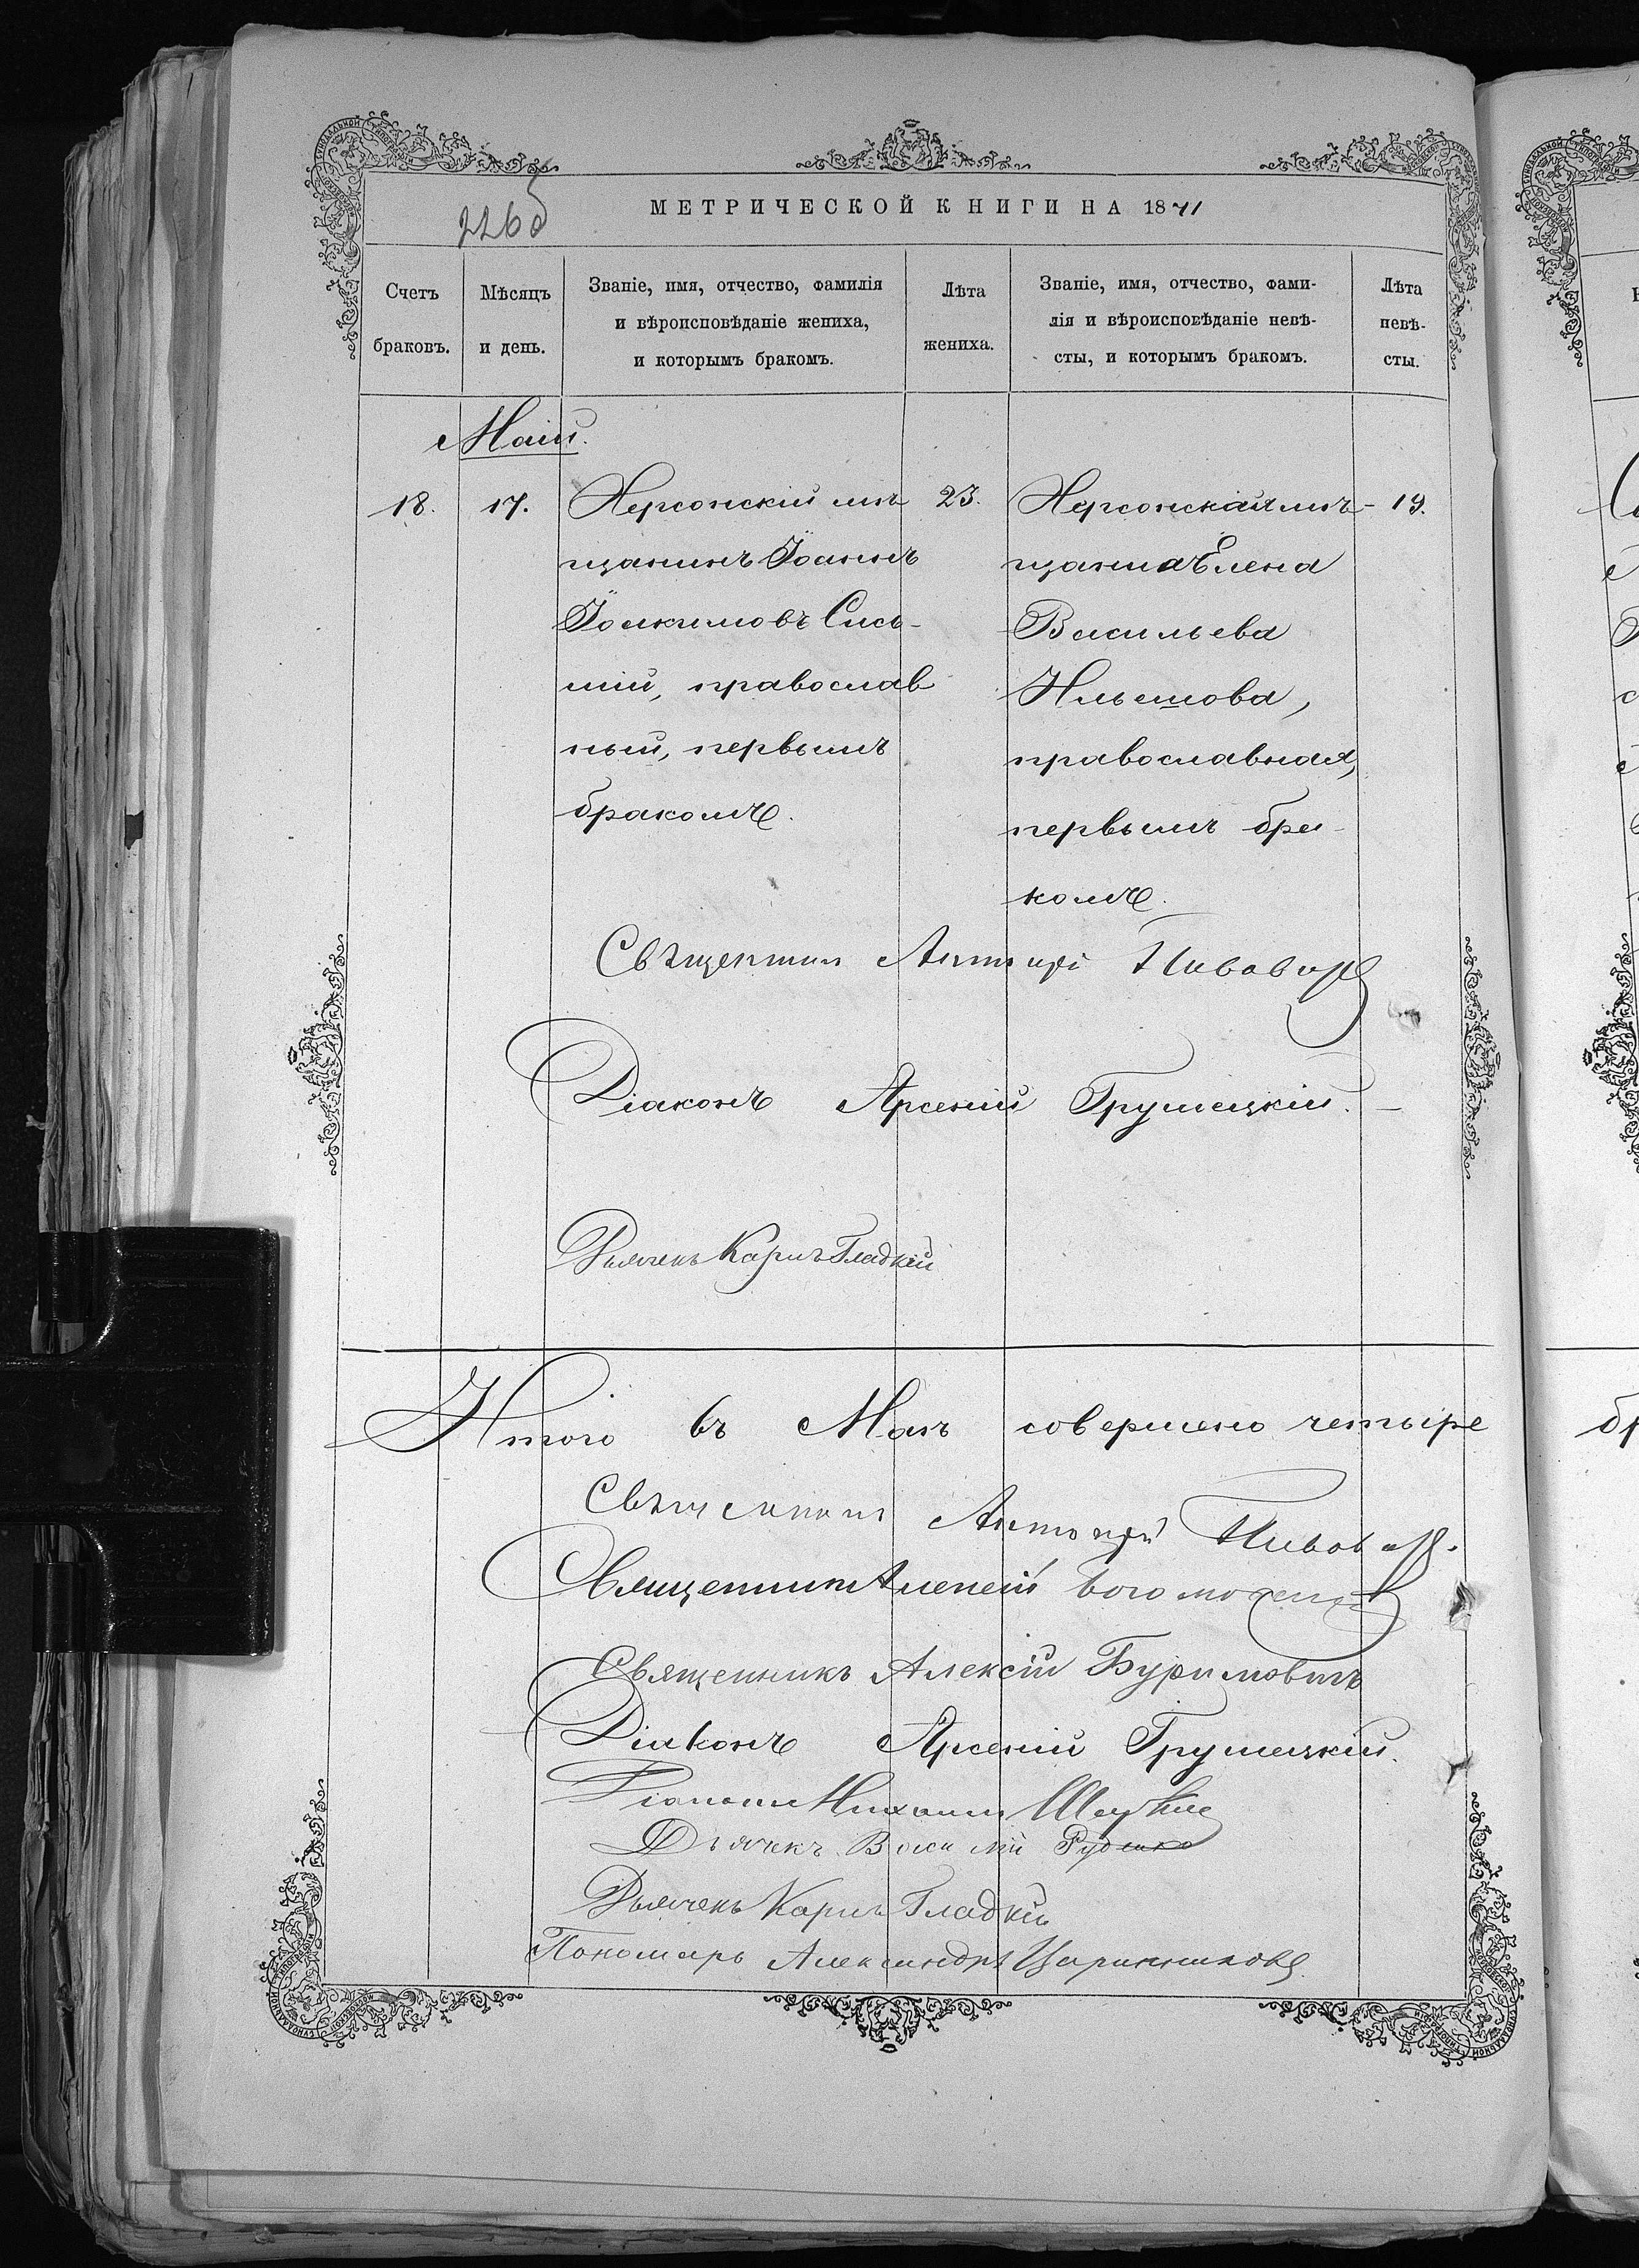 226 б
МЕТРИЧЕСКОЙ КНИГИ НА 1871
Счетъ браковъ.
Мѣсяцъ и день.
Званіе, имя, отчество, фамилія
и вѣроисповѣданіе жениха,
и которымъ бракомъ.
Лѣта жениха.
Званіе, имя, отчество, фами-
лія и вѣроисповѣданіе невѣ-
сты, и которымъ бракомъ.
Лѣта невѣ-
сты.
Маій.
18.
17.
Херсонскій мѣ
щанинъ Іоаннъ
Іоакимовъ Сись-
мій, православ
ный, первымъ
бракомъ.
23.
Херсонская мѣ-
щанка Елена
Васильева
Ильешова,
православная,
первымъ бра-
комъ.
19.
Свѣщенник Антоній Пивовар
Діаконъ Арсеній Грушецкій.
Дьячекъ Карпъ Гладкій
Итого въ Маѣ совершено четыре
Свѣщенник Антоній Пивовар.
Священник Алексій
Священникъ Алексій Буримовичъ
Діаконъ Арсеній Грушецкій.
Діаконъ Михаилъ
Дьячекъ Василій Руденко
Дьячекъ Карпъ Гладкій
Пономарь Александръ